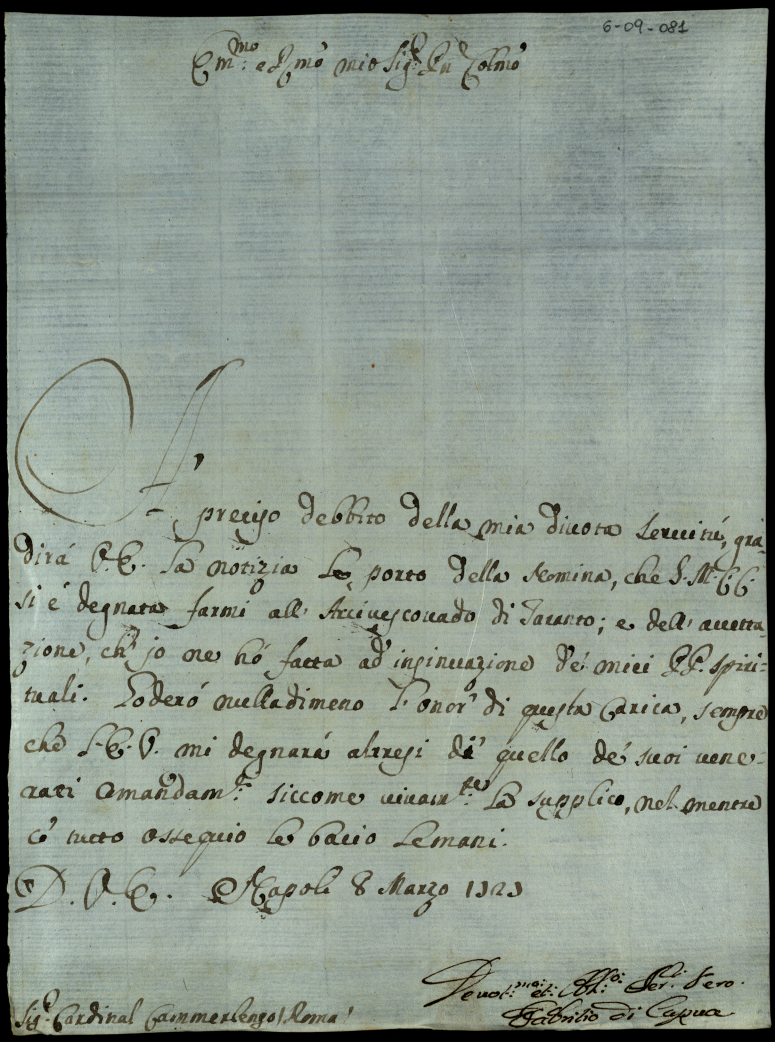 6-09-081
Em.mo e Rmo mio Sig.e Pn Colmo
A' preciso debbito della mia divota servitú, gra-
dirá V.E. la notizia Le porto della nomina, che S.M.C.C.
si é degnata farmi all' Arcivescovado di Taranto; e dell' accetta-
zione, ch' io ne hó fatta ad insinuazione de' miei PP. spiri-
tuali. Goderó nulladimeno l' onor' di questa Carica, sempre
che L'E.V. mi degnará altresi di quello de' suoi vene-
rati Comandam.ti siccome vivam.te La supplico, nel mentre
có tutto ossequio le bacio Le mani.
D. V. E. Napoli 8 Marzo 1727
Devot.mo et Obb.mo Ser. Vero
Fabritio di Capua
Sig.e Cardinal Cammerlengo (Roma)